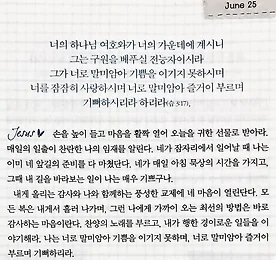 June 25
너의 하나님 여호와가 너의 가운데에 계시니
그는 구원을 베푸실 전능자이시라
그가 너로 말미암아 기쁨을 이기지 못하시며
너를 잠잠히 사랑하시며 너로 말미암아 즐거이 부르며
기뻐하시리라 하리라(습 3:17).
Jesus♥ 손을 높이 들고 마음을 활짝 열어 오늘을 귀한 선물로 받아라.
매일의 일출이 찬란한 나의 임재를 알린다. 네가 잠자리에서 일어날 때 나는
이미 네 앞길의 준비를 다 마쳤단다. 네가 매일 아침 묵상의 시간을 가지고,
그때 내 길을 바라보는 일이 나는 매우 기쁘구나.
내게 올리는 감사와 나와 함께하는 풍성한 교제에 네 마음이 열린단다. 모
든 복은 내게서 흘러 나가며, 그런 나에게 가까이 오는 최선의 방법은 바로
감사하는 마음이란다. 찬양의 노래를 부르고, 내가 행한 경이로운 일들을 이
야기해라. 나는 너로 말미암아 기쁨을 이기지 못하며, 너로 말미암아 즐거이
부르며 기뻐하리라.